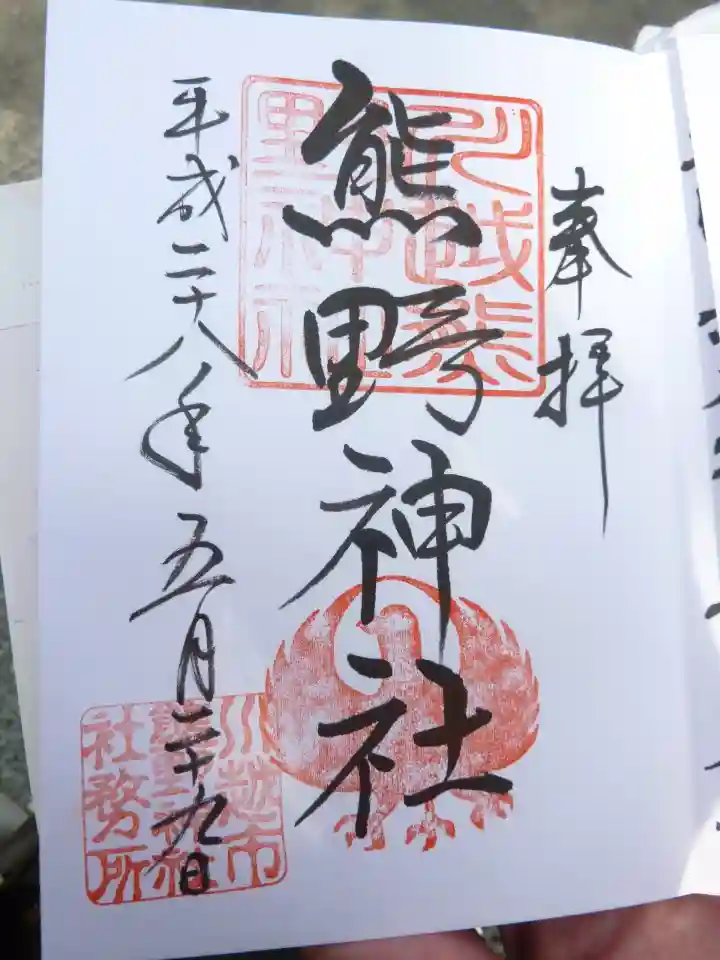 奉拝
川越熊野神社
熊野神社
平成二十八年五月二十九日
川越市
熊野神社
社務所